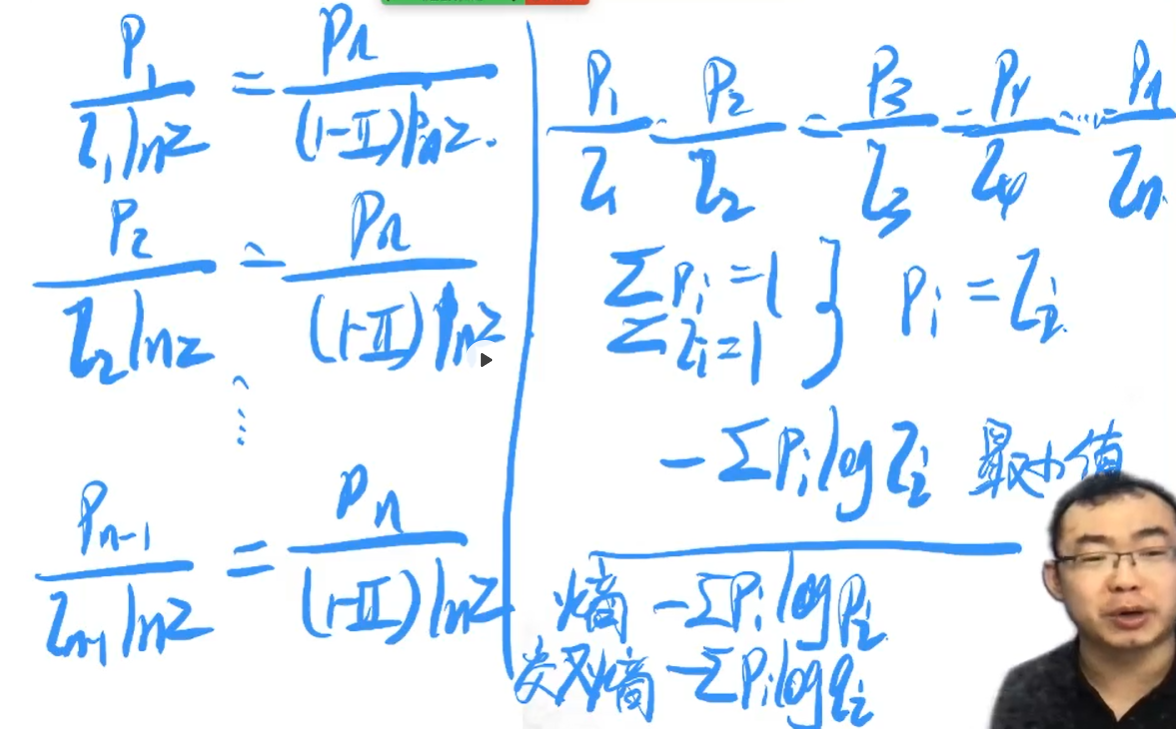 P₁/(Z₁ln2) = Pn/((1-II)ln2)
P₂/(Z₂ln2) = Pn/((1-II)ln2)
⋮
Pn-1/(Zn-1 ln2) = Pn/((1-II)ln2)
P₁/Z₁ = P₂/Z₂ = P₃/Z₃ = P₄/Z₄ = ... = Pn/Zn
ΣPi=1
ΣZi=1 } Pi=Zi
-ΣPi log Zi 最小值
熵 -ΣPi log Pi
交叉熵 -ΣPi log qi